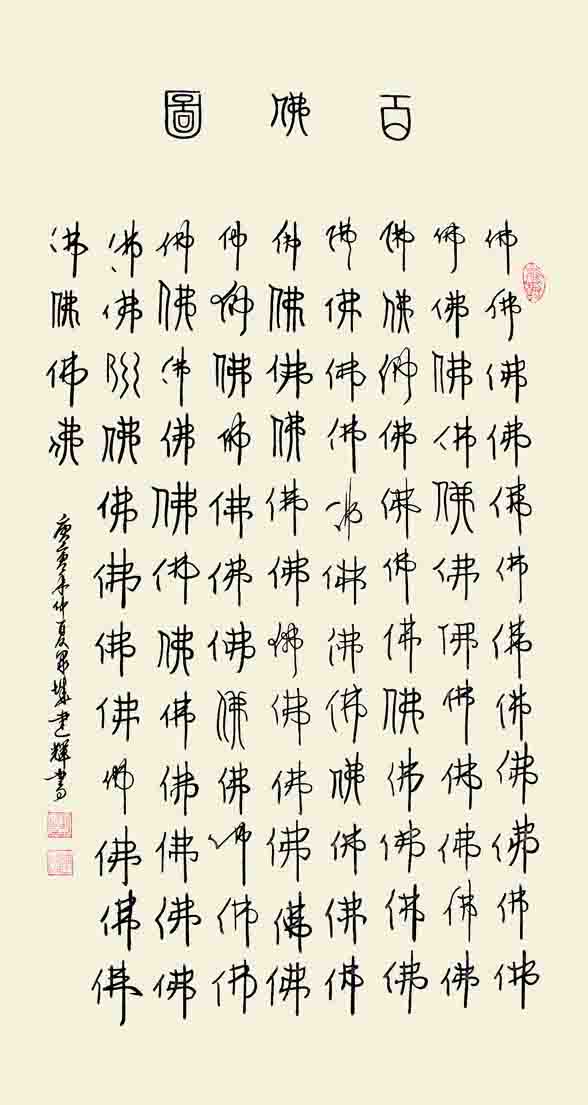 百佛圖
佛佛佛佛佛佛佛佛佛佛佛佛
佛佛佛佛佛佛佛佛佛佛佛佛
佛佛佛佛佛佛佛佛佛佛佛佛
佛佛佛佛佛佛佛佛佛佛佛佛
佛佛佛佛佛佛佛佛佛佛佛佛
佛佛佛佛佛佛佛佛佛佛佛佛
佛佛佛佛佛佛佛佛佛佛佛佛
佛佛佛佛佛佛佛佛佛佛佛佛
佛佛佛佛
庚寅年仲夏建輝書